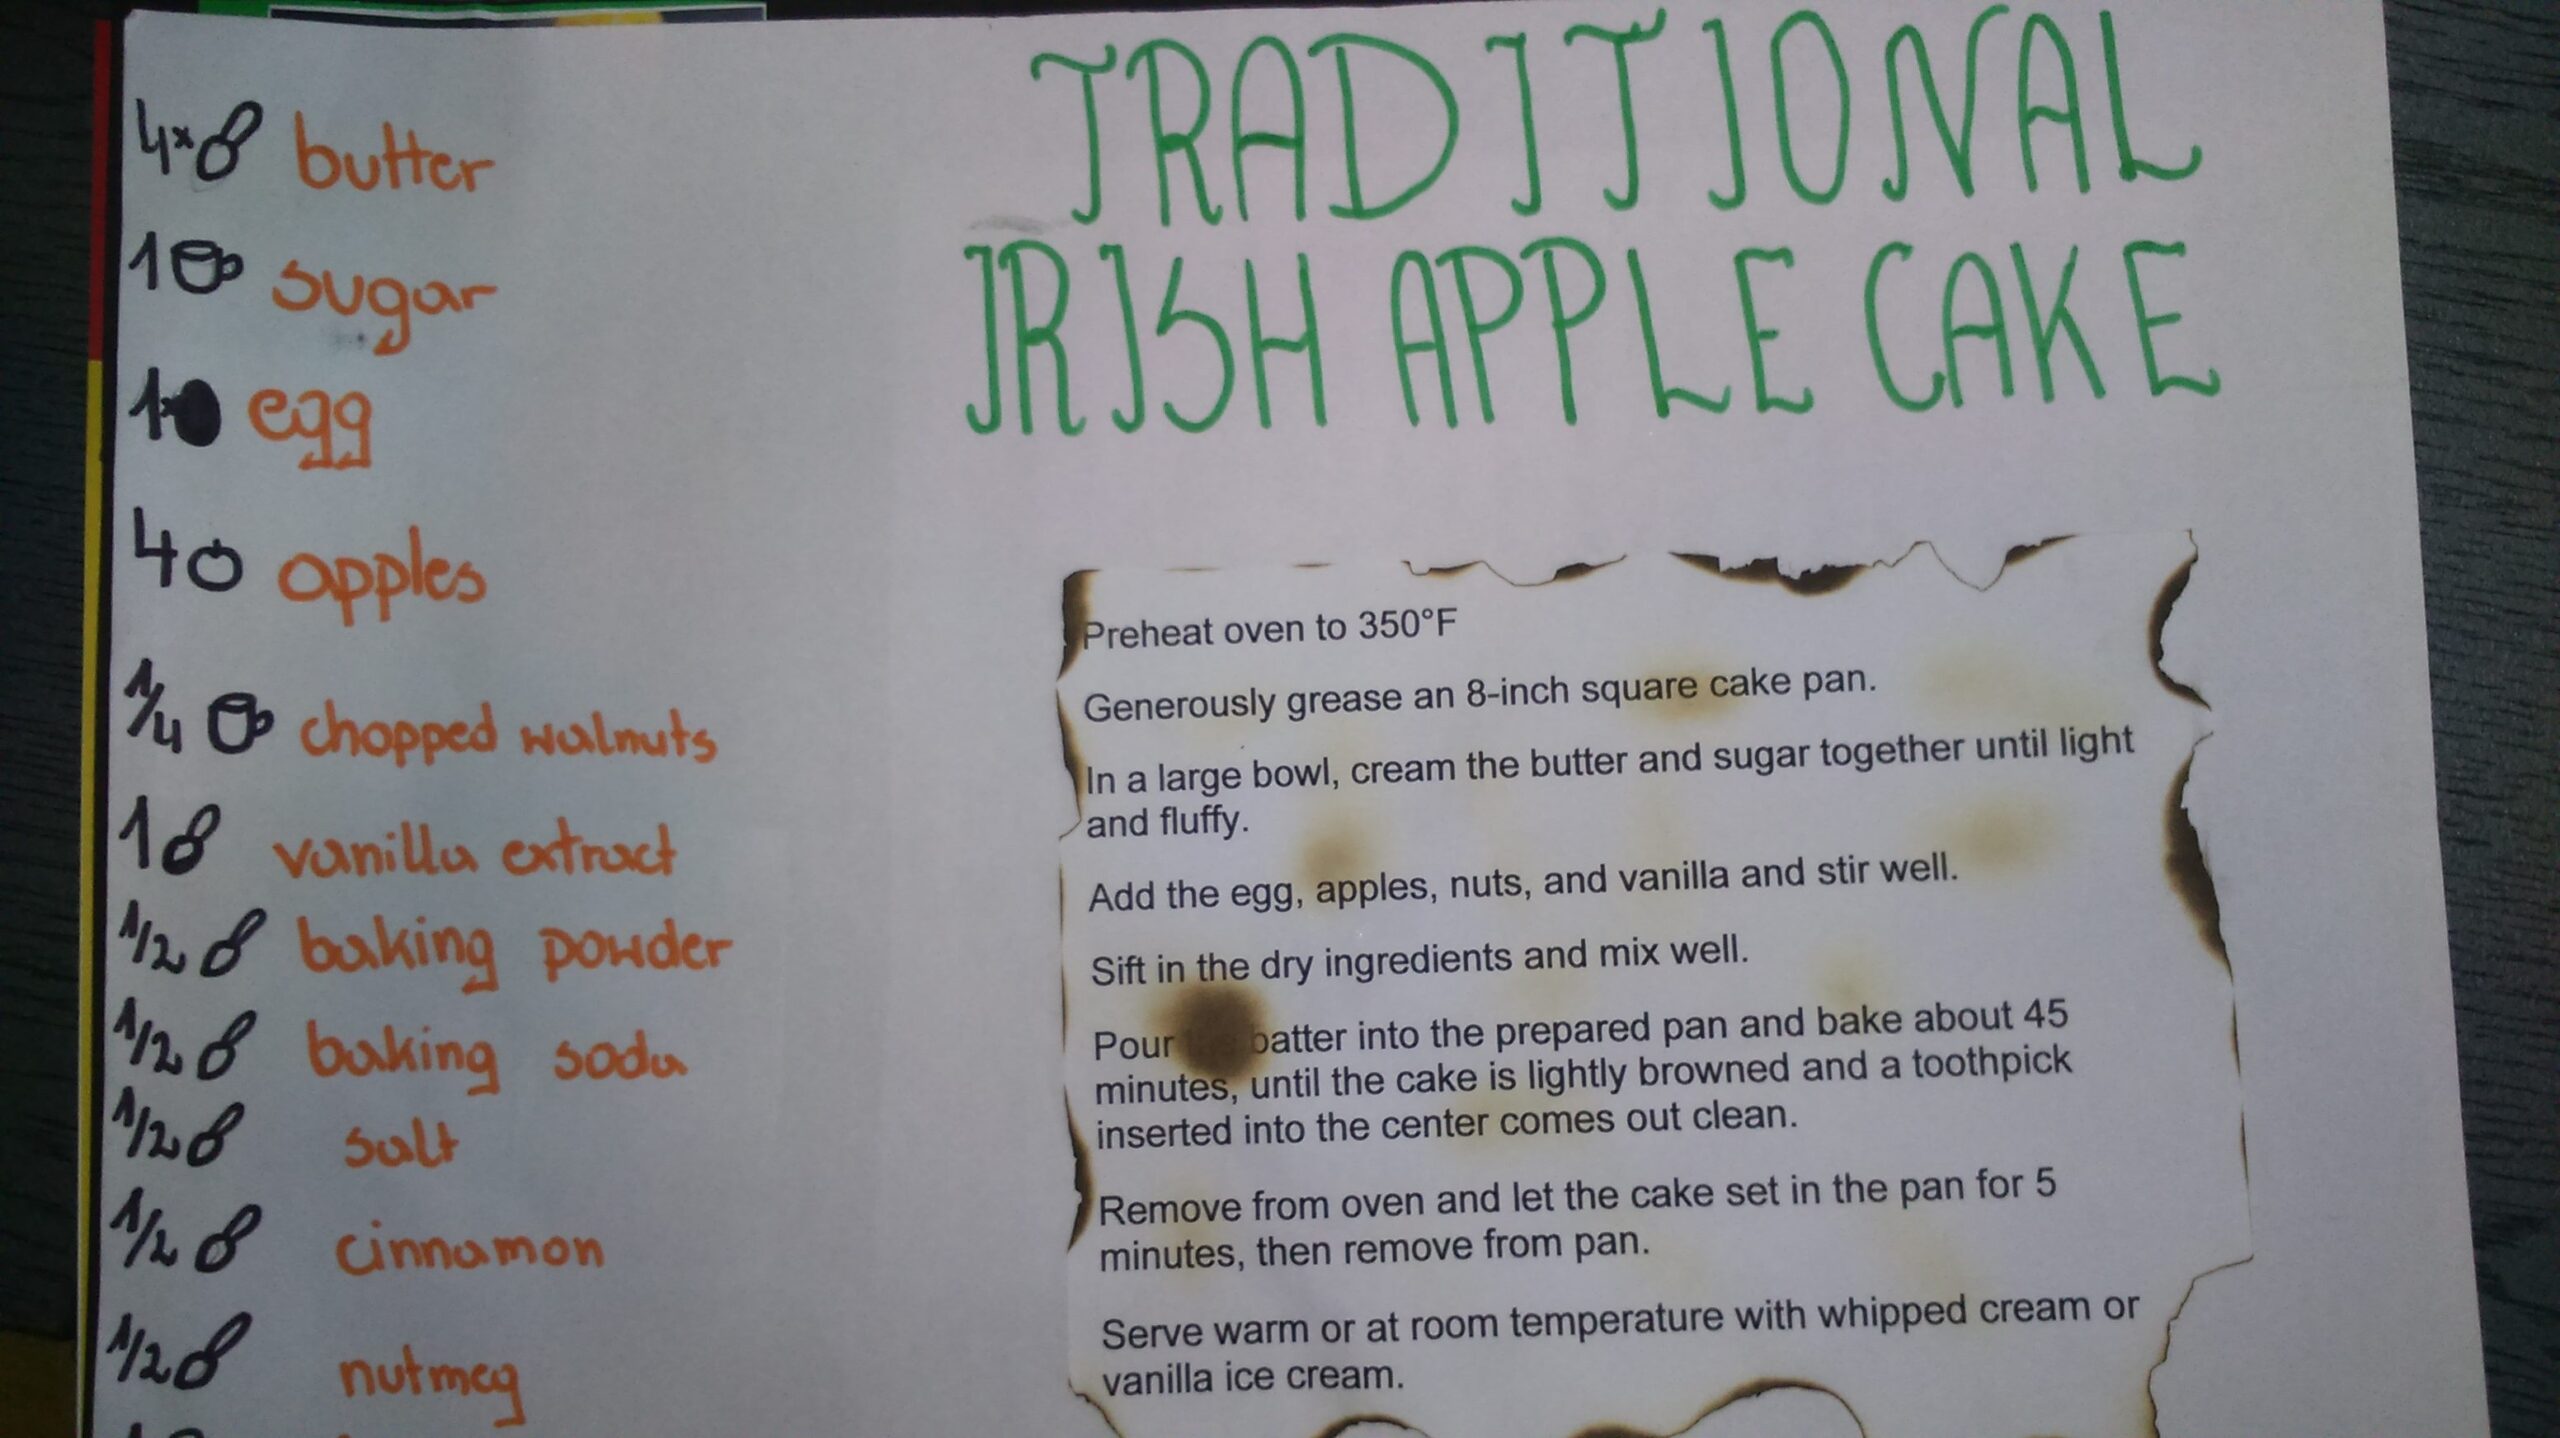 TRADITIONAL
IRISH APPLE CAKE
4x butter
1 sugar
1x egg
4 apples
1/4 chopped walnuts
1 vanilla extract
1/2 baking powder
1/2 baking soda
1/2 salt
1/2 cinnamon
1/2 nutmeg
Preheat oven to 350°F
Generously grease an 8-inch square cake pan.
In a large bowl, cream the butter and sugar together until light
and fluffy.
Add the egg, apples, nuts, and vanilla and stir well.
Sift in the dry ingredients and mix well.
Pour batter into the prepared pan and bake about 45
minutes, until the cake is lightly browned and a toothpick
inserted into the center comes out clean.
Remove from oven and let the cake set in the pan for 5
minutes, then remove from pan.
Serve warm or at room temperature with whipped cream or
vanilla ice cream.